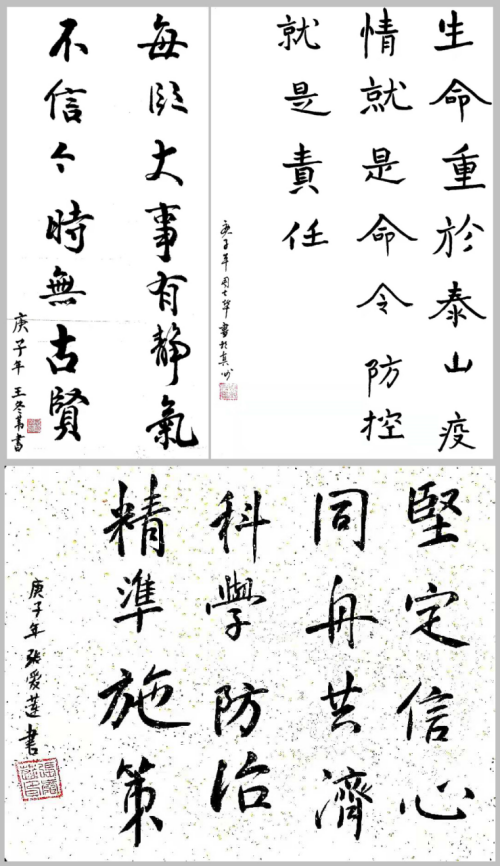 每臨大事有靜氣
不信今時無古賢
庚子年 王冬書
生命重於泰山疫
情就是命令防控
就是責任
庚子年周士华書於真州
堅定信心
同舟共濟
科學防治
精準施策
庚子年張爱蓮書